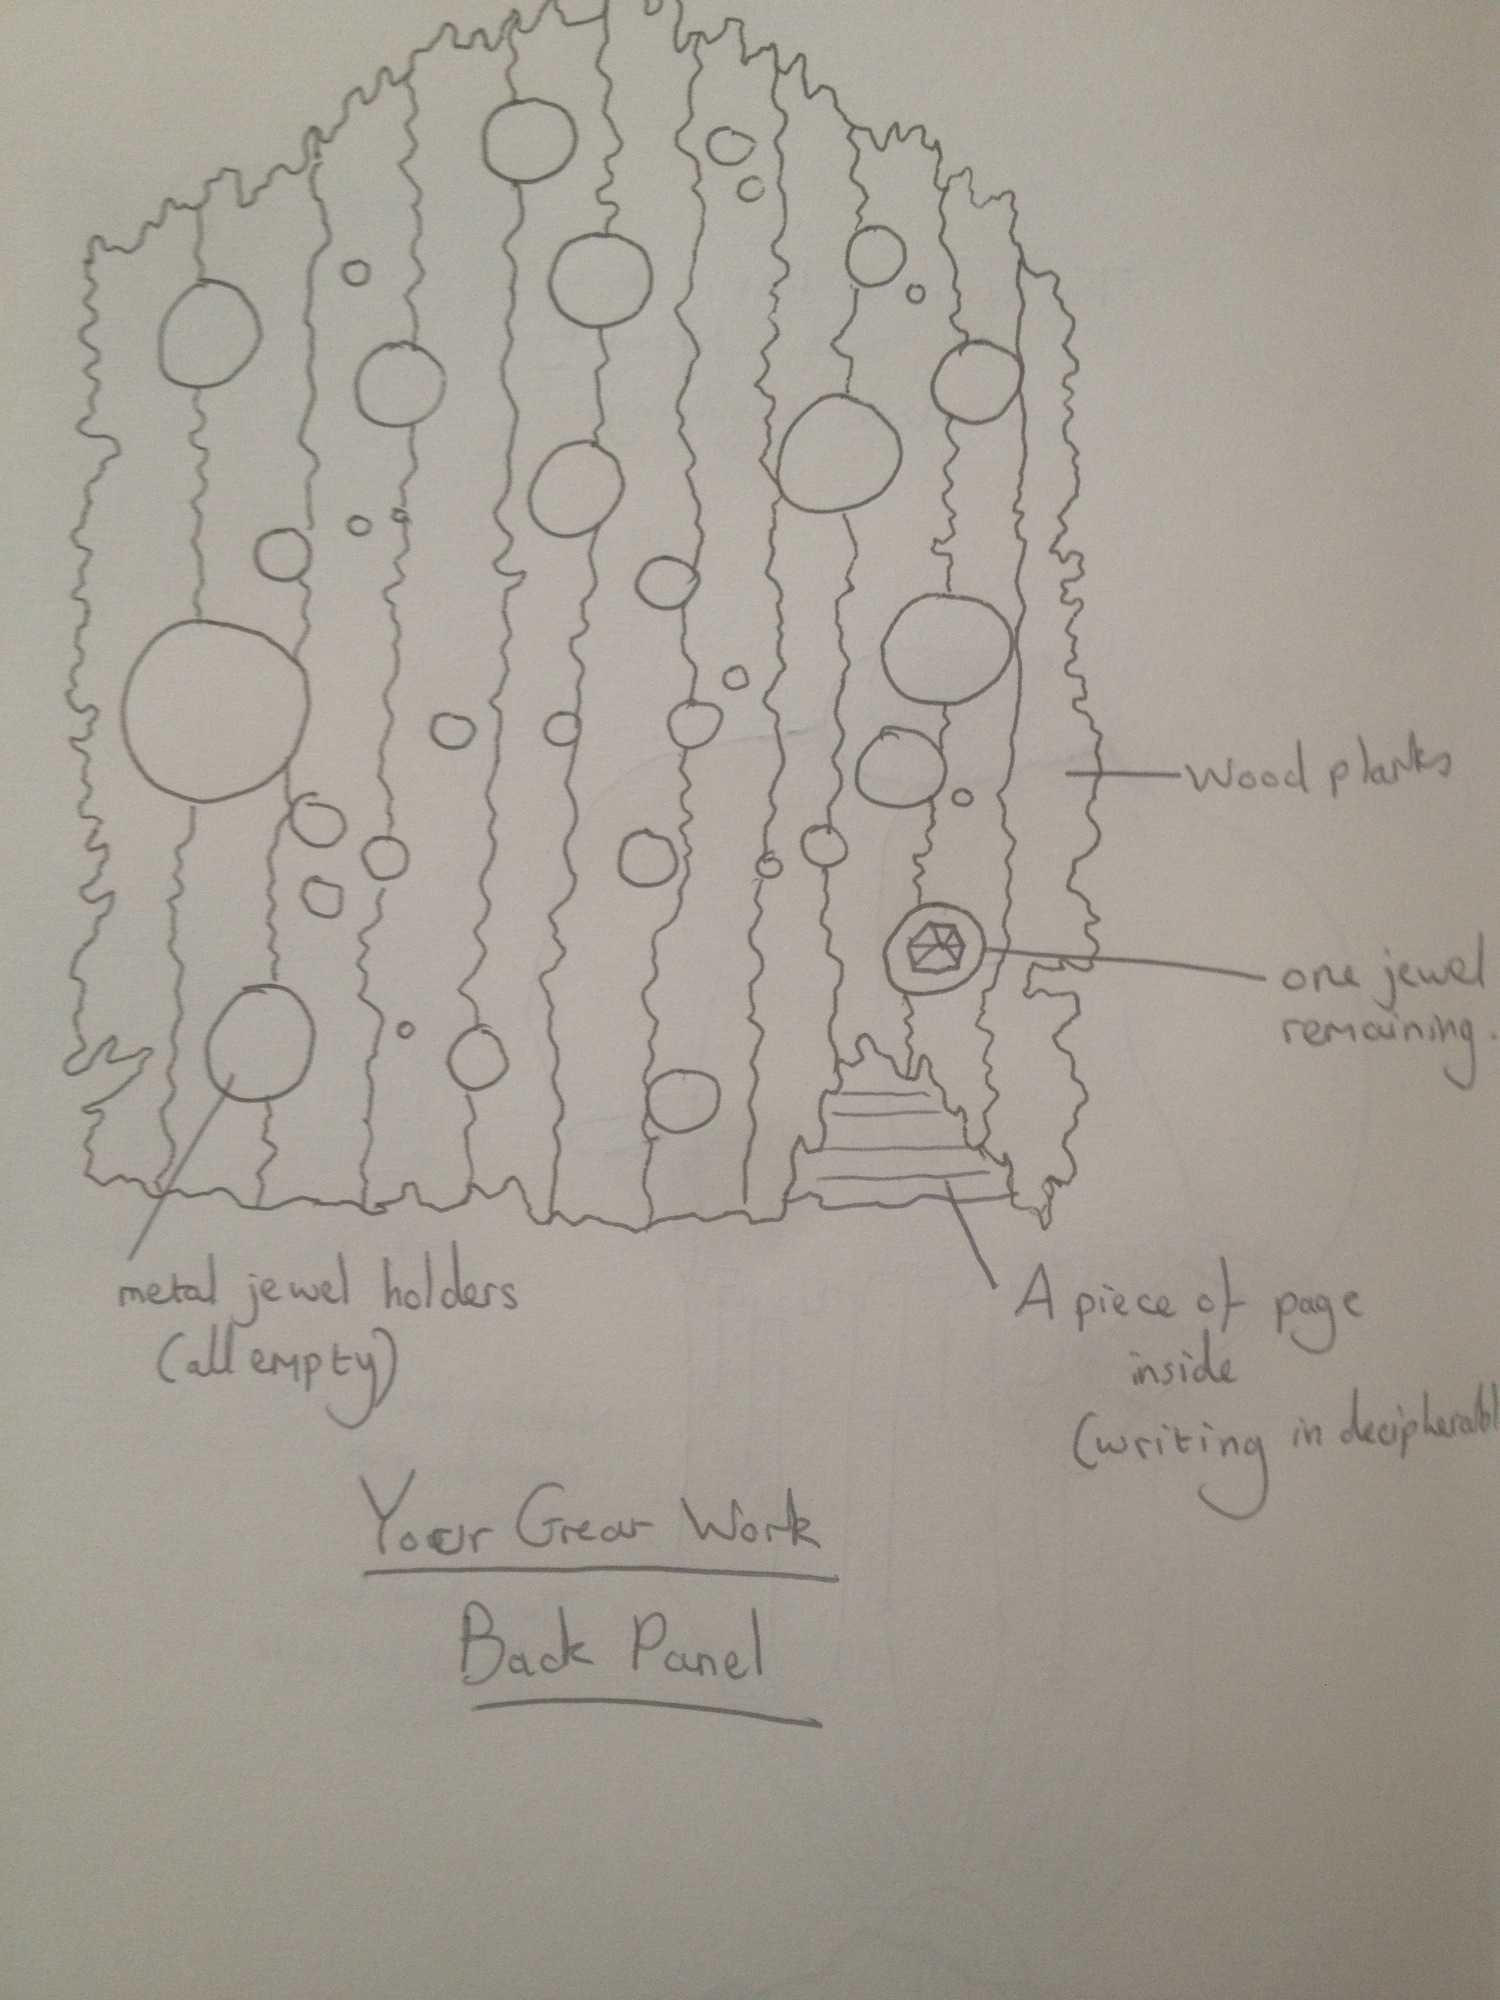 Wood planks
one jewel
remaining.
metal jewel holders
(all empty)
A piece of page
inside
(writing in decipherabl
Your Great Work
Back Panel